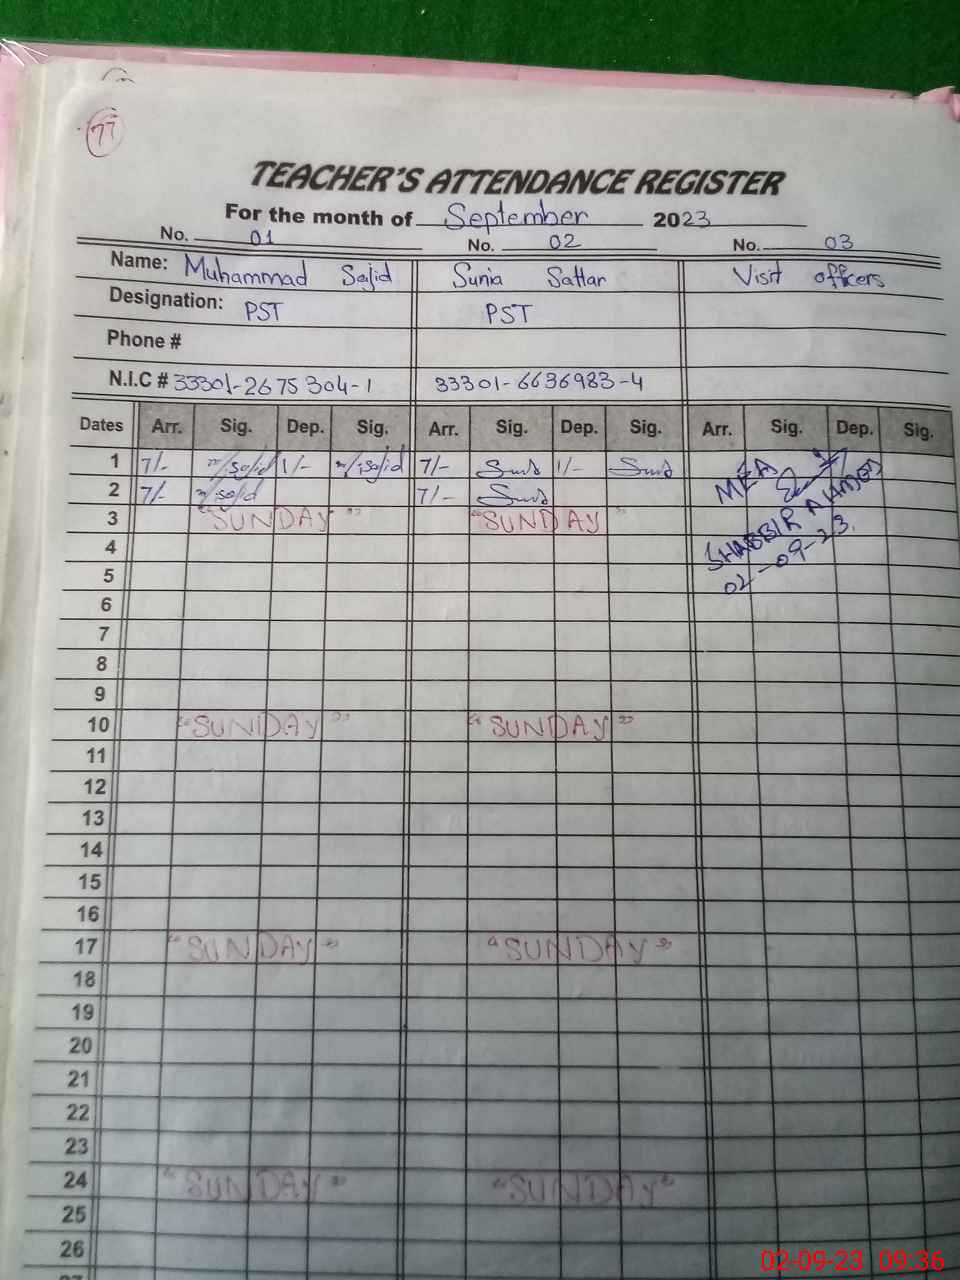 77
TEACHER'S ATTENDANCE REGISTER
For the month of September 2023
No. 01 No. 02 No. 03
Name: Muhammad Sajid Sunia Sattar Visit officers
Designation: PST PST
Phone #
N.I.C # 33301-2675304-1 33301-6636983-4
Dates Arr. Sig. Dep. Sig. Arr. Sig. Dep. Sig. Arr. Sig. Dep. Sig.
1 7/- 1/- 7/- 1/-
2 7/- 7/-
MEA
SHABBIR AHMED
02-09-23.
3 "SUNDAY" "SUNDAY"
4
5
6
7
8
9
10 "SUNDAY" "SUNDAY"
11
12
13
14
15
16
17 "SUNDAY" "SUNDAY"
18
19
20
21
22
23
24 "SUNDAY" "SUNDAY"
25
26
02-09-23 09:36